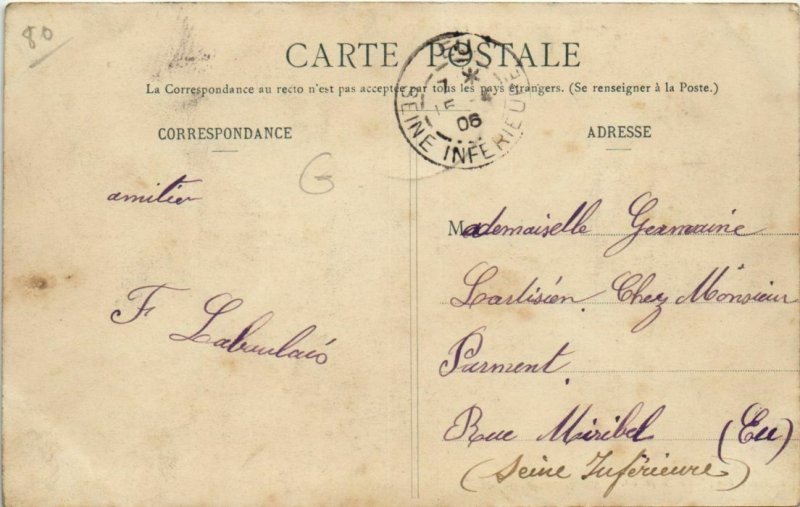 80
CARTE POSTALE
La Correspondance au recto n'est pas acceptée par tous les pays étrangers. (Se renseigner à la Poste.)
EU
7
15
06
SEINE INFERIEURE
CORRESPONDANCE
ADRESSE
G
amitier
F Labaulais
Mademaiselle Germaine
Lartisien Chez Monsieur
Parment
Rue Miribel (Eu)
(Seine Inférieure)